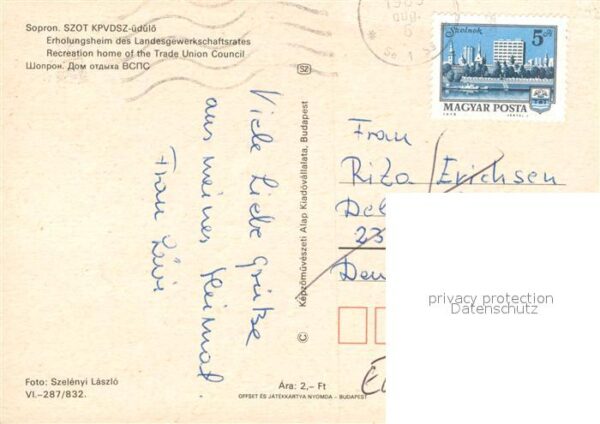 Sopron. SZOT KPVDSZ-üdülő
Erholungsheim des Landesgewerkschaftsrates
Recreation home of the Trade Union Council
Шопрон. Дом отдыха ВСПС
SZ
Viele liebe Grütze
aus meiner Heimat.
Frau
Képzőművészeti Alap Kiadóvállalata, Budapest
Szolnok
5 Ft
MAGYAR POSTA
Frau
Rita Erichsen
23
privacy protection
Datenschutz
Foto: Szelényi László
VI.-287/832.
Ára: 2,- Ft
OFFSET ÉS JÁTÉKKÁRTYA NYOMDA - BUDAPEST